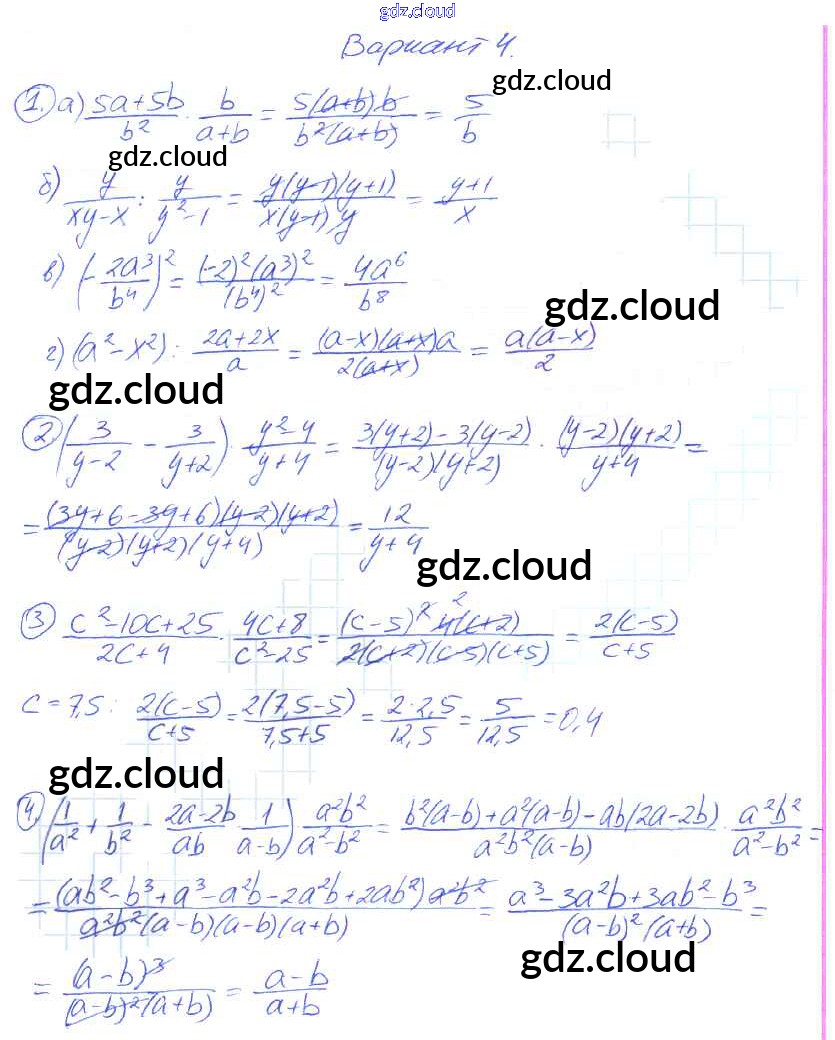 gdz.cloud
Вариант 4.
gdz.cloud
1. а) (5a+5b)/b² · b/(a+b) = 5(a+b)b/(b²(a+b)) = 5/b
gdz.cloud
б) y/(xy-x) : y/(y²-1) = y(y-1)(y+1)/(x(y-1)y) = (y+1)/x
в) (-2a³/b⁴)² = (-2)²(a³)²/(b⁴)² = 4a⁶/b⁸
gdz.cloud
г) (a²-x²) : (2a+2x)/a = (a-x)(a+x)a/(2(a+x)) = a(a-x)/2
gdz.cloud
2. (3/(y-2) - 3/(y+2)) · (y²-4)/(y+4) = (3(y+2)-3(y-2))/((y-2)(y+2)) · (y-2)(y+2)/(y+4) =
= (3y+6-3y+6)(y-2)(y+2)/((y-2)(y+2)(y+4)) = 12/(y+4)
gdz.cloud
3 (c²-10c+25)/(2c+4) · (4c+8)/(c²-25) = (c-5)² 4(c+2)/(2(c+2)(c-5)(c+5)) = 2(c-5)/(c+5)
c=7,5: 2(c-5)/(c+5) = 2(7,5-5)/(7,5+5) = 2·2,5/12,5 = 5/12,5 = 0,4
gdz.cloud
4. (1/a² + 1/b² - (2a-2b)/ab · 1/(a-b)) · a²b²/(a²-b²) = (b²(a-b)+a²(a-b)-ab(2a-2b))/(a²b²(a-b)) · a²b²/(a²-b²) =
= (ab²-b³+a³-a²b-2a²b+2ab²)a²b²/(a²b²(a-b)(a-b)(a+b)) = (a³-3a²b+3ab²-b³)/((a-b)²(a+b)) =
gdz.cloud
= (a-b)³/((a-b)²(a+b)) = (a-b)/(a+b)